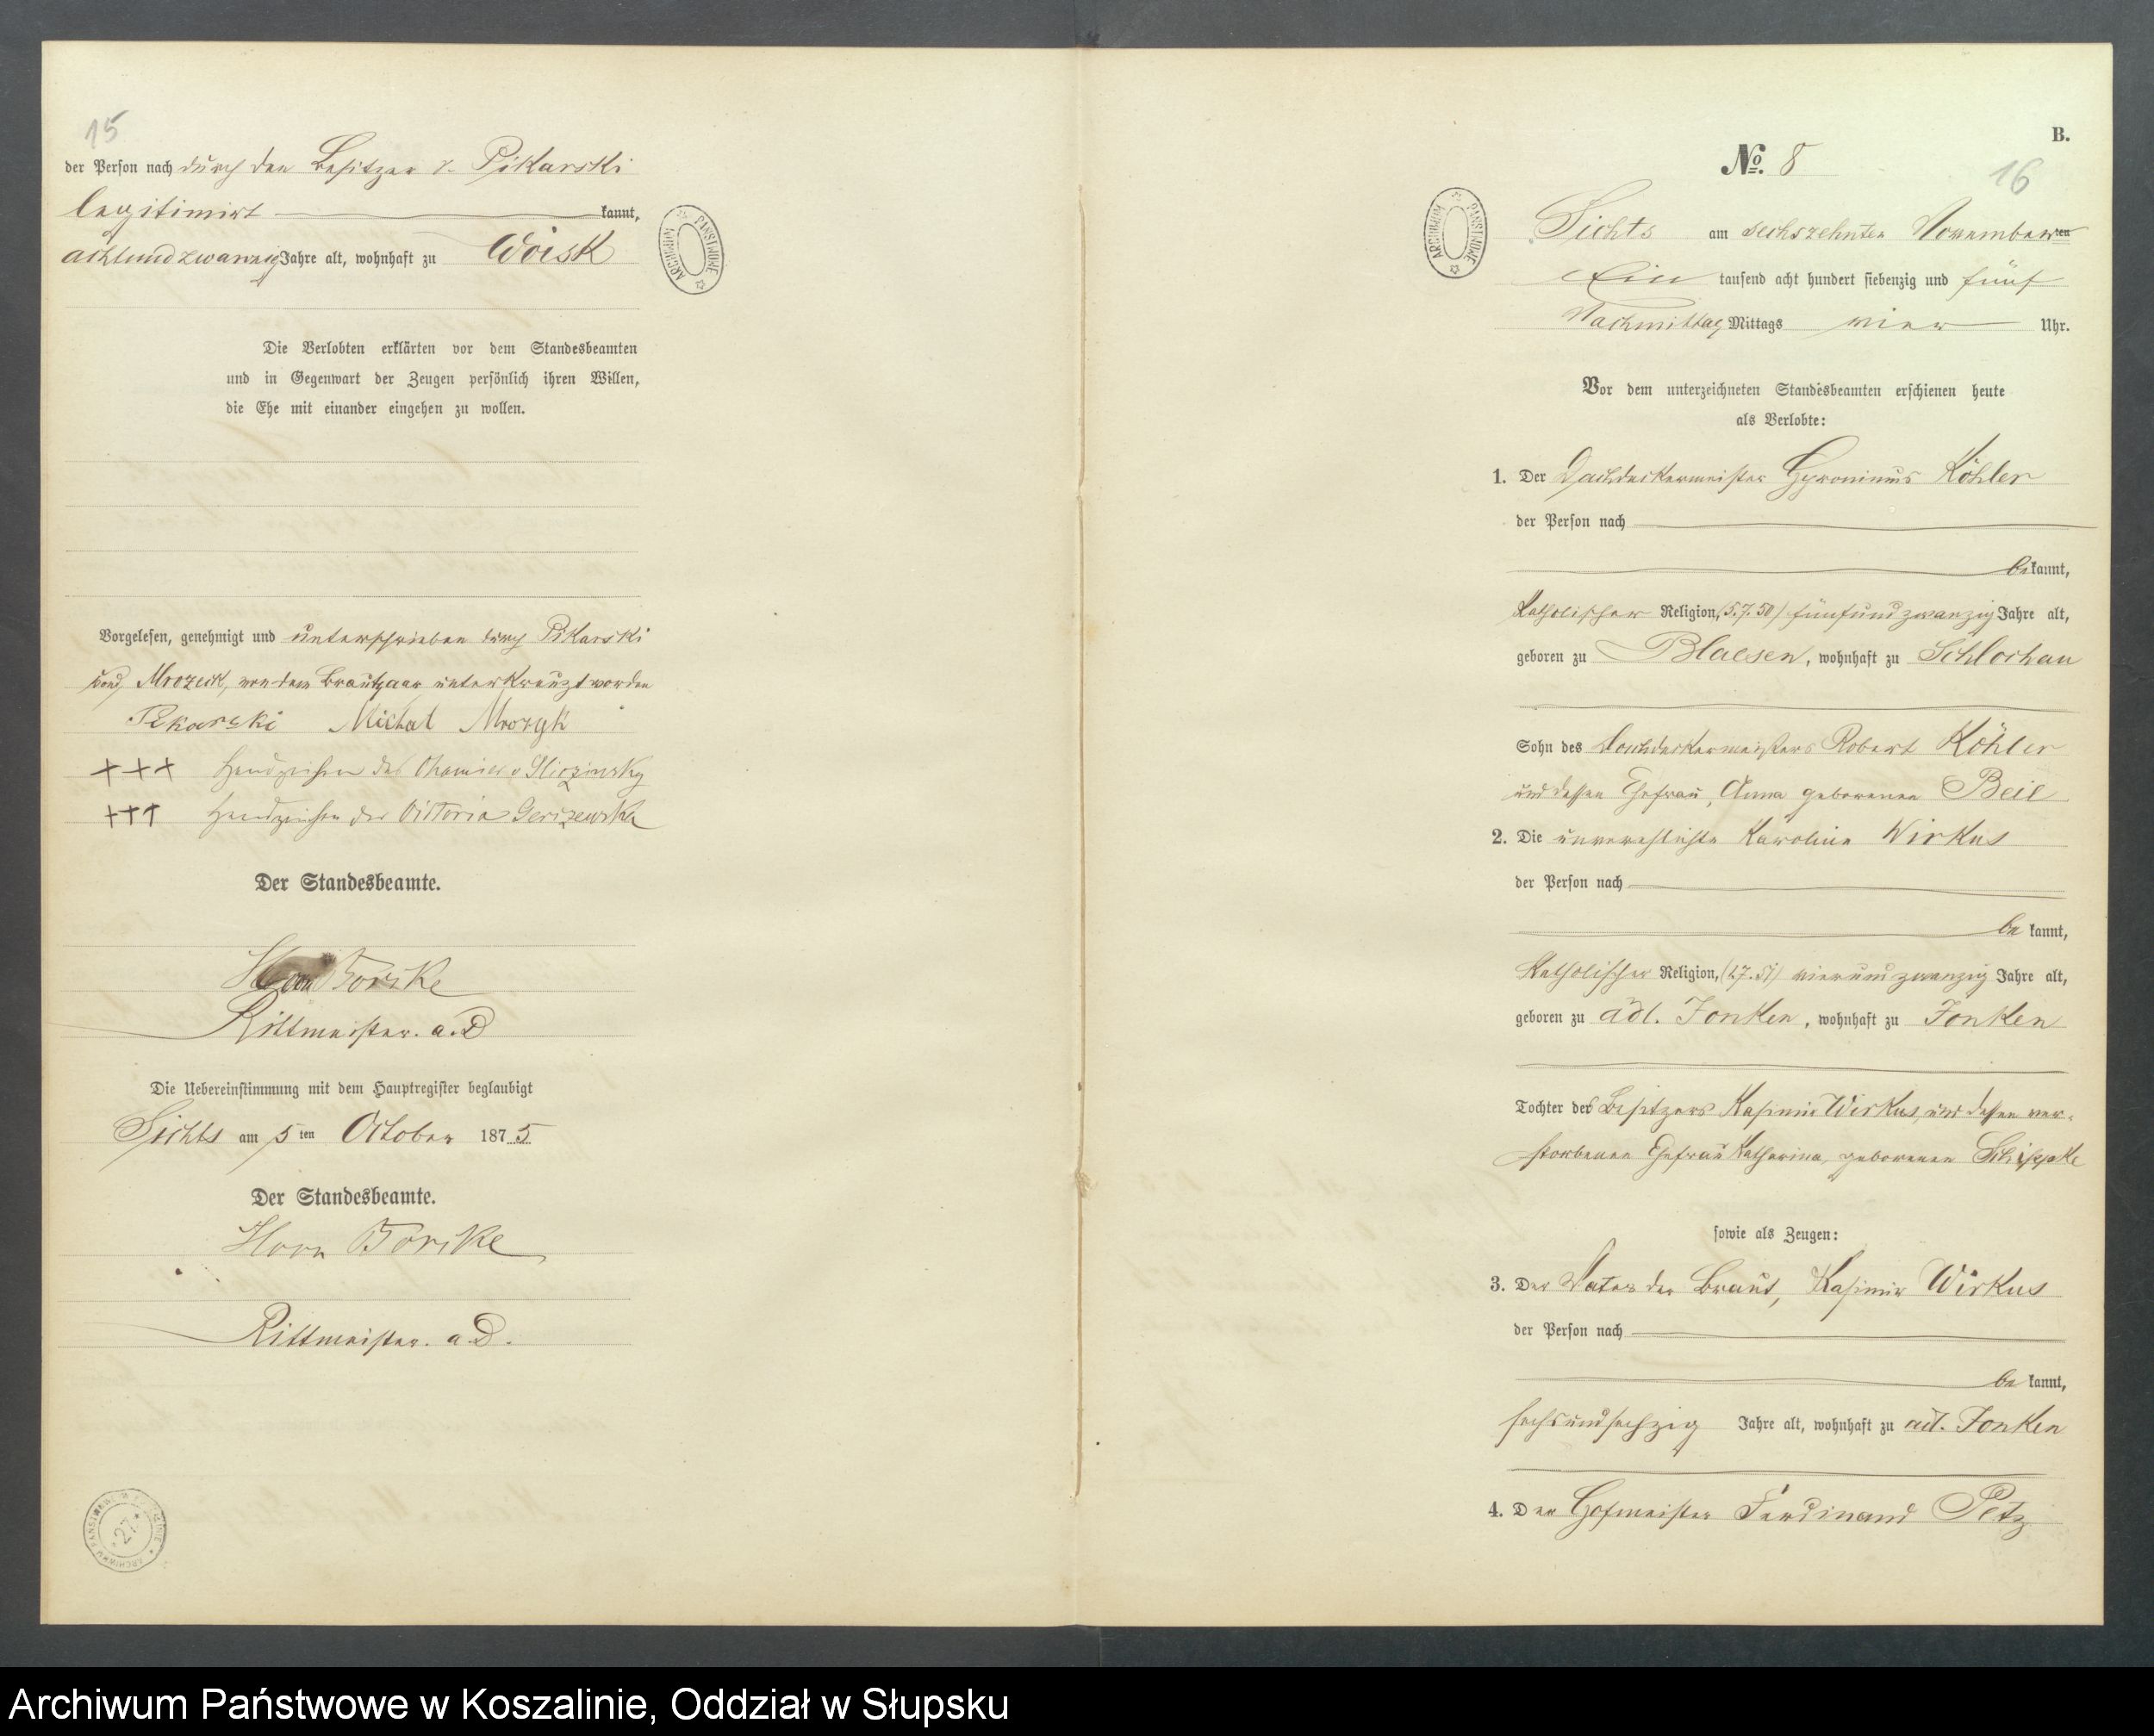 15
der Person nach durch den Besitzer v. Pikarski
legitimirt kannt,
achtundzwanzig Jahre alt, wohnhaft zu Woisk
ARCHIWUM PAŃSTWOWE
Die Verlobten erklärten vor dem Standesbeamten
und in Gegenwart der Zeugen persönlich ihren Willen,
die Ehe mit einander eingehen zu wollen.
Vorgelesen, genehmigt und unterschrieben durch Pikarski
und Mrozeck, von dem Brautpaar unterkreuzt worden
Pikarski Michal Mrozyk
+++ Handzeichen des Chamier v Gliszinsky
+++ Handzeichen der Victoria
Der Standesbeamte.
Rittmeister. a. D
Die Uebereinstimmung mit dem Hauptregister beglaubigt
Sichts am 5ten October 1875
Der Standesbeamte.
Rittmeister. a. D.
27
B.
No. 8
16
ARCHIWUM PAŃSTWOWE
Sichts am sechszehnten Novemberten
Ein tausend acht hundert siebenzig und fünf
Nachmittag Mittags vier Uhr.
Vor dem unterzeichneten Standesbeamten erschienen heute
als Verlobte:
1. Der Dachdeckermeister Hyronimus Köhler
der Person nach
bekannt,
katholischer Religion, (5.7.50) fünfundzwanzig Jahre alt,
geboren zu Blaesen, wohnhaft zu Schlochau
Sohn des Dachdeckermeisters Robert Köhler
und dessen Ehefrau, Anna geborenen Beil
2. Die unverehelichte Karoline Wirkus
der Person nach
be kannt,
katholischer Religion, vierundzwanzig Jahre alt,
geboren zu adl. Jonken, wohnhaft zu Jonken
Tochter des Besitzers Kasimir Wirkus, und dessen ver-
storbenen Ehefrau Katharina, geborenen Schippke
sowie als Zeugen:
3. Der Vater der Braut, Kasimir Wirkus
der Person nach
be kannt,
sechsundsechzig Jahre alt, wohnhaft zu adl. Jonken
4. Der Hofmeister Ferdinand Petz
Archiwum Państwowe w Koszalinie, Oddział w Słupsku